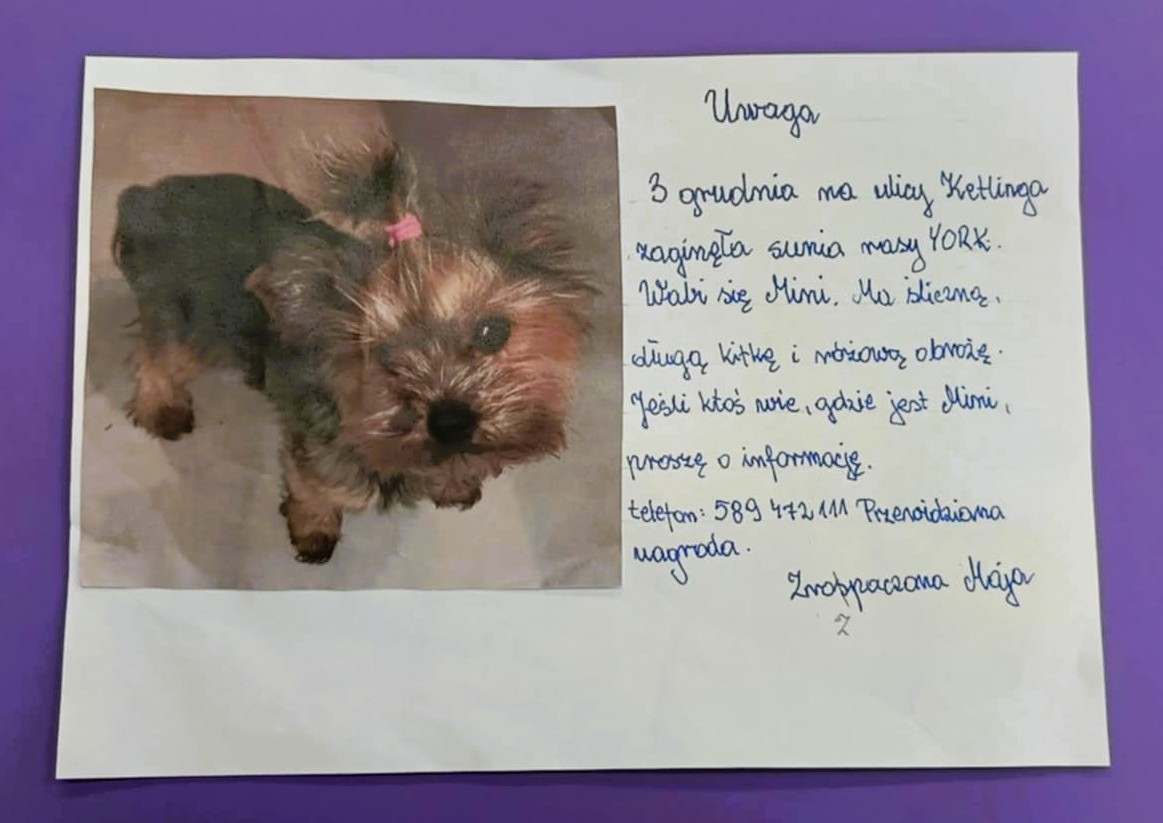 Uwaga
3 grudnia na ulicy Ketlinga
zaginęła sunia rasy YORK.
Wabi się Mini. Ma śliczną,
długą kitkę i różową obrożę.
Jeśli ktoś wie, gdzie jest Mini,
proszę o informację.
telefon: 589 472 111 Przewidziana
nagroda.
Zrospaczona Maja
z